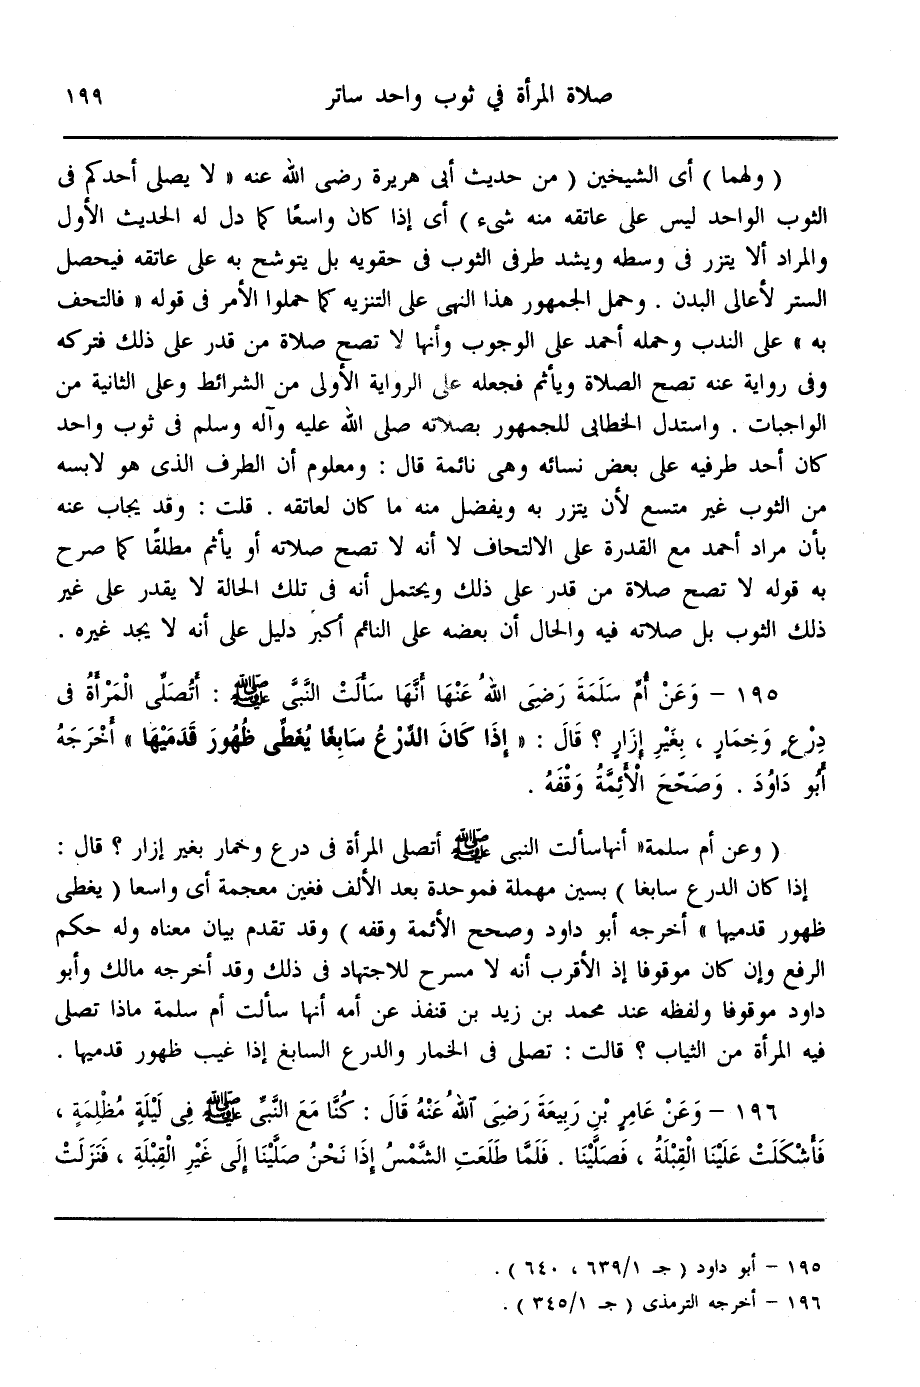 صلاة المرأة في ثوب واحد ساتر ١٩٩
( ولهما ) أى الشيخين ( من حديث أبى هريرة رضى الله عنه « لا يصلى أحدكم فى
الثوب الواحد ليس على عاتقه منه شىء ) أى إذا كان واسعًا كما دل له الحديث الأول
والمراد ألا يتزر فى وسطه ويشد طرفى الثوب فى حقويه بل يتوشح به على عاتقه فيحصل
الستر لأعالى البدن . وحمل الجمهور هذا النهى على التنزيه كما حملوا الأمر فى قوله « فالتحف
به » على الندب وحمله أحمد على الوجوب وأنها لا تصح صلاة من قدر على ذلك فتركه
وفى رواية عنه تصح الصلاة ويأثم فجعله على الرواية الأولى من الشرائط وعلى الثانية من
الواجبات . واستدل الخطابى للجمهور بصلاته صلى الله عليه وآله وسلم فى ثوب واحد
كان أحد طرفيه على بعض نسائه وهى نائمة قال : ومعلوم أن الطرف الذى هو لابسه
من الثوب غير متسع لأن يتزر به ويفضل منه ما كان لعاتقه . قلت : وقد يجاب عنه
بأن مراد أحمد مع القدرة على الالتحاف لا أنه لا تصح صلاته أو يأثم مطلقًا كما صرح
به قوله لا تصح صلاة من قدر على ذلك ويحتمل أنه فى تلك الحالة لا يقدر على غير
ذلك الثوب بل صلاته فيه والحال أن بعضه على النائم أكبر دليل على أنه لا يجد غيره .
١٩٥ – وَعَنْ أُمِّ سَلَمَةَ رَضِىَ اللهُ عَنْهَا أَنَّهَا سَأَلَتْ النَّبِىَّ ﷺ : أَتُصَلِّى الْمَرْأَةُ فِى
دِرْعٍ وَخِمَارٍ ، بِغَيْرِ إِزَارٍ ؟ قَالَ : « إِذَا كَانَ الدِّرْعُ سَابِغًا يُغَطِّى ظُهُورَ قَدَمَيْهَا » أَخْرَجَهُ
أَبُو دَاوُدَ . وَصَحَّحَ الْأَئِمَّةُ وَقْفَهُ .
( وعن أم سلمة« أنهاسألت النبى ﷺ أتصلى المرأة فى درع وخمار بغير إزار ؟ قال :
إذا كان الدرع سابغا ) بسين مهملة فموحدة بعد الألف فغين معجمة أى واسعا ( يغطى
ظهور قدميها » أخرجه أبو داود وصحح الأئمة وقفه ) وقد تقدم بيان معناه وله حكم
الرفع وإن كان موقوفا إذ الأقرب أنه لا مسرح للاجتهاد فى ذلك وقد أخرجه مالك وأبو
داود موقوفا ولفظه عند محمد بن زيد بن قنفذ عن أمه أنها سألت أم سلمة ماذا تصلى
فيه المرأة من الثياب ؟ قالت : تصلى فى الخمار والدرع السابغ إذا غيب ظهور قدميها .
١٩٦ – وَعَنْ عَامِرِ بْنِ رَبِيعَةَ رَضِىَ اللهُ عَنْهُ قَالَ : كُنَّا مَعَ النَّبِىِّ ﷺ فِى لَيْلَةٍ مُظْلِمَةٍ ،
فَأَشْكَلَتْ عَلَيْنَا الْقِبْلَةُ ، فَصَلَّيْنَا . فَلَمَّا طَلَعَتِ الشَّمْسُ إِذَا نَحْنُ صَلَّيْنَا إِلَى غَيْرِ الْقِبْلَةِ ، فَنَزَلَتْ
١٩٥ – أبو داود ( جـ ٦٣٩/١ ، ٦٤٠ ) .
١٩٦ – أخرجه الترمذى ( جـ ٣٤٥/١ ) .